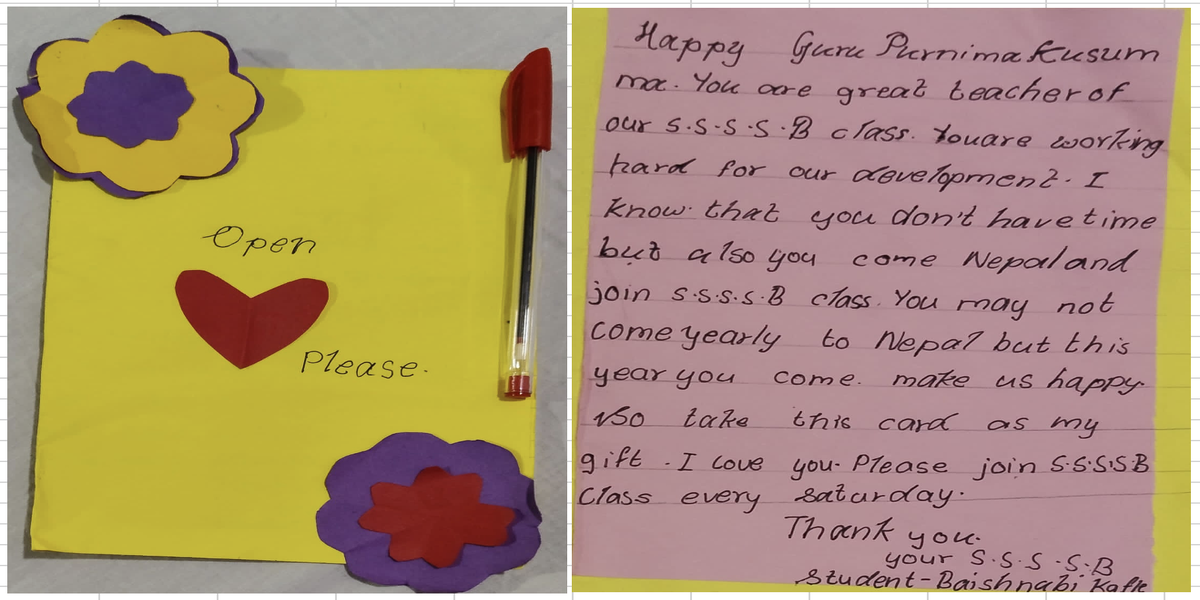 Open
Please.
Happy Guru Purnima Kusum
ma. You are great teacher of
our S.S.S.S.B class. You are working
hard for our development. I
know. that you don't have time
but also you come Nepal and
join S.S.S.S.B class. You may not
come yearly to Nepal but this
year you come. make us happy.
So take this card as my
gift. I love you. Please join S.S.S.S.B
Class every saturday.
Thank you.
your S.S.S.S.B
Student-Baishnabi Kafle